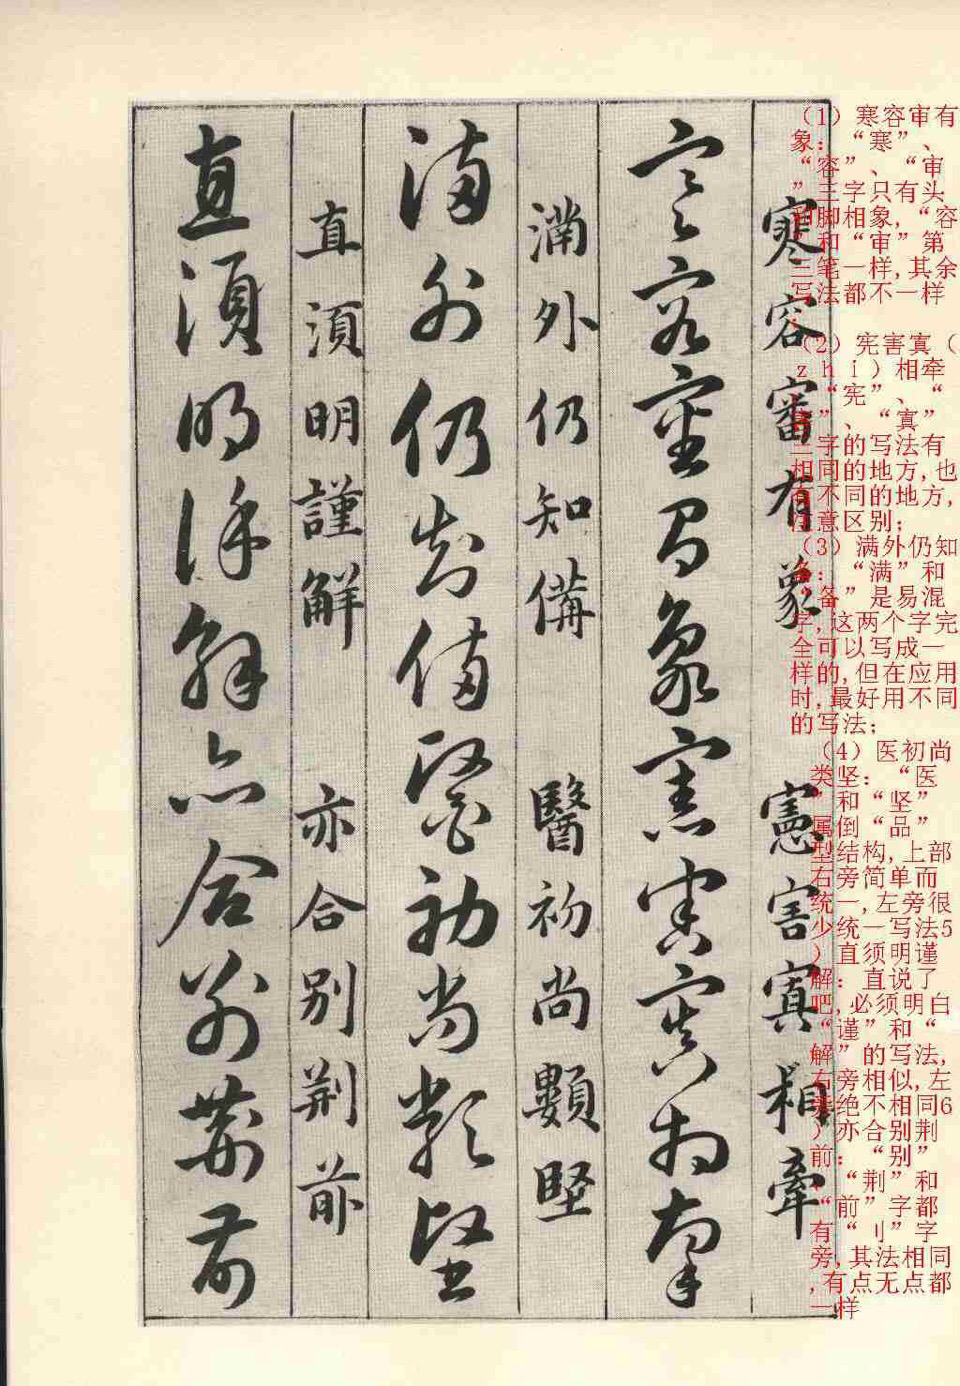 寒容審有象　憲害寘相牽
寒容審有象憲害寘相牽
滿外仍知備　醫初尚類堅
滿外仍知備醫初尚類堅
直須明謹解　亦合別荆前
直須明謹解亦合別荆前
（1）寒容审有
象：“寒”、
“容”、“审
”三字只有头
和脚相象,“容
”和“审”第
三笔一样,其余
写法都不一样
（2）宪害寘（
zhi）相牵
“宪”、“
害”、“寘”
三字的写法有
相同的地方,也
有不同的地方,
注意区别；
（3）满外仍知
备：“满”和
“备”是易混
字,这两个字完
全可以写成一
样的,但在应用
时,最好用不同
的写法；
（4）医初尚
类坚：“医
”和“坚”
属倒“品”
型结构,上部
右旁简单而
统一,左旁很
少统一写法5
）直须明谨
解：直说了
吧,必须明白
“谨”和“
解”的写法,
右旁相似,左
旁绝不相同6
）亦合别荆
前：“别”
、“荆”和
“前”字都
有“刂”字
旁,其法相同
,有点无点都
一样